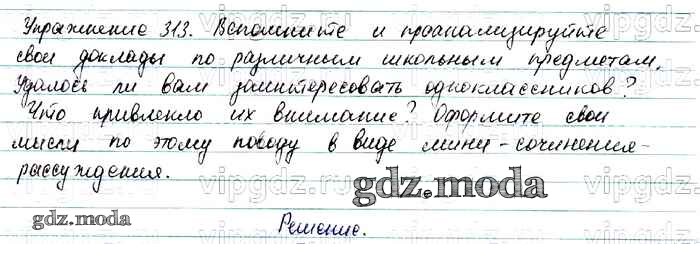 Упражнение 313. Вспомните и проанализируйте
свои доклады по различным школьным предметам.
Удалось ли вам заинтересовать одноклассников?
Что привлекло их внимание? Оформите свои
мысли по этому поводу в виде мини-сочинения-
рассуждения.
gdz.moda
gdz.moda
Решение.
vipgdz.ru